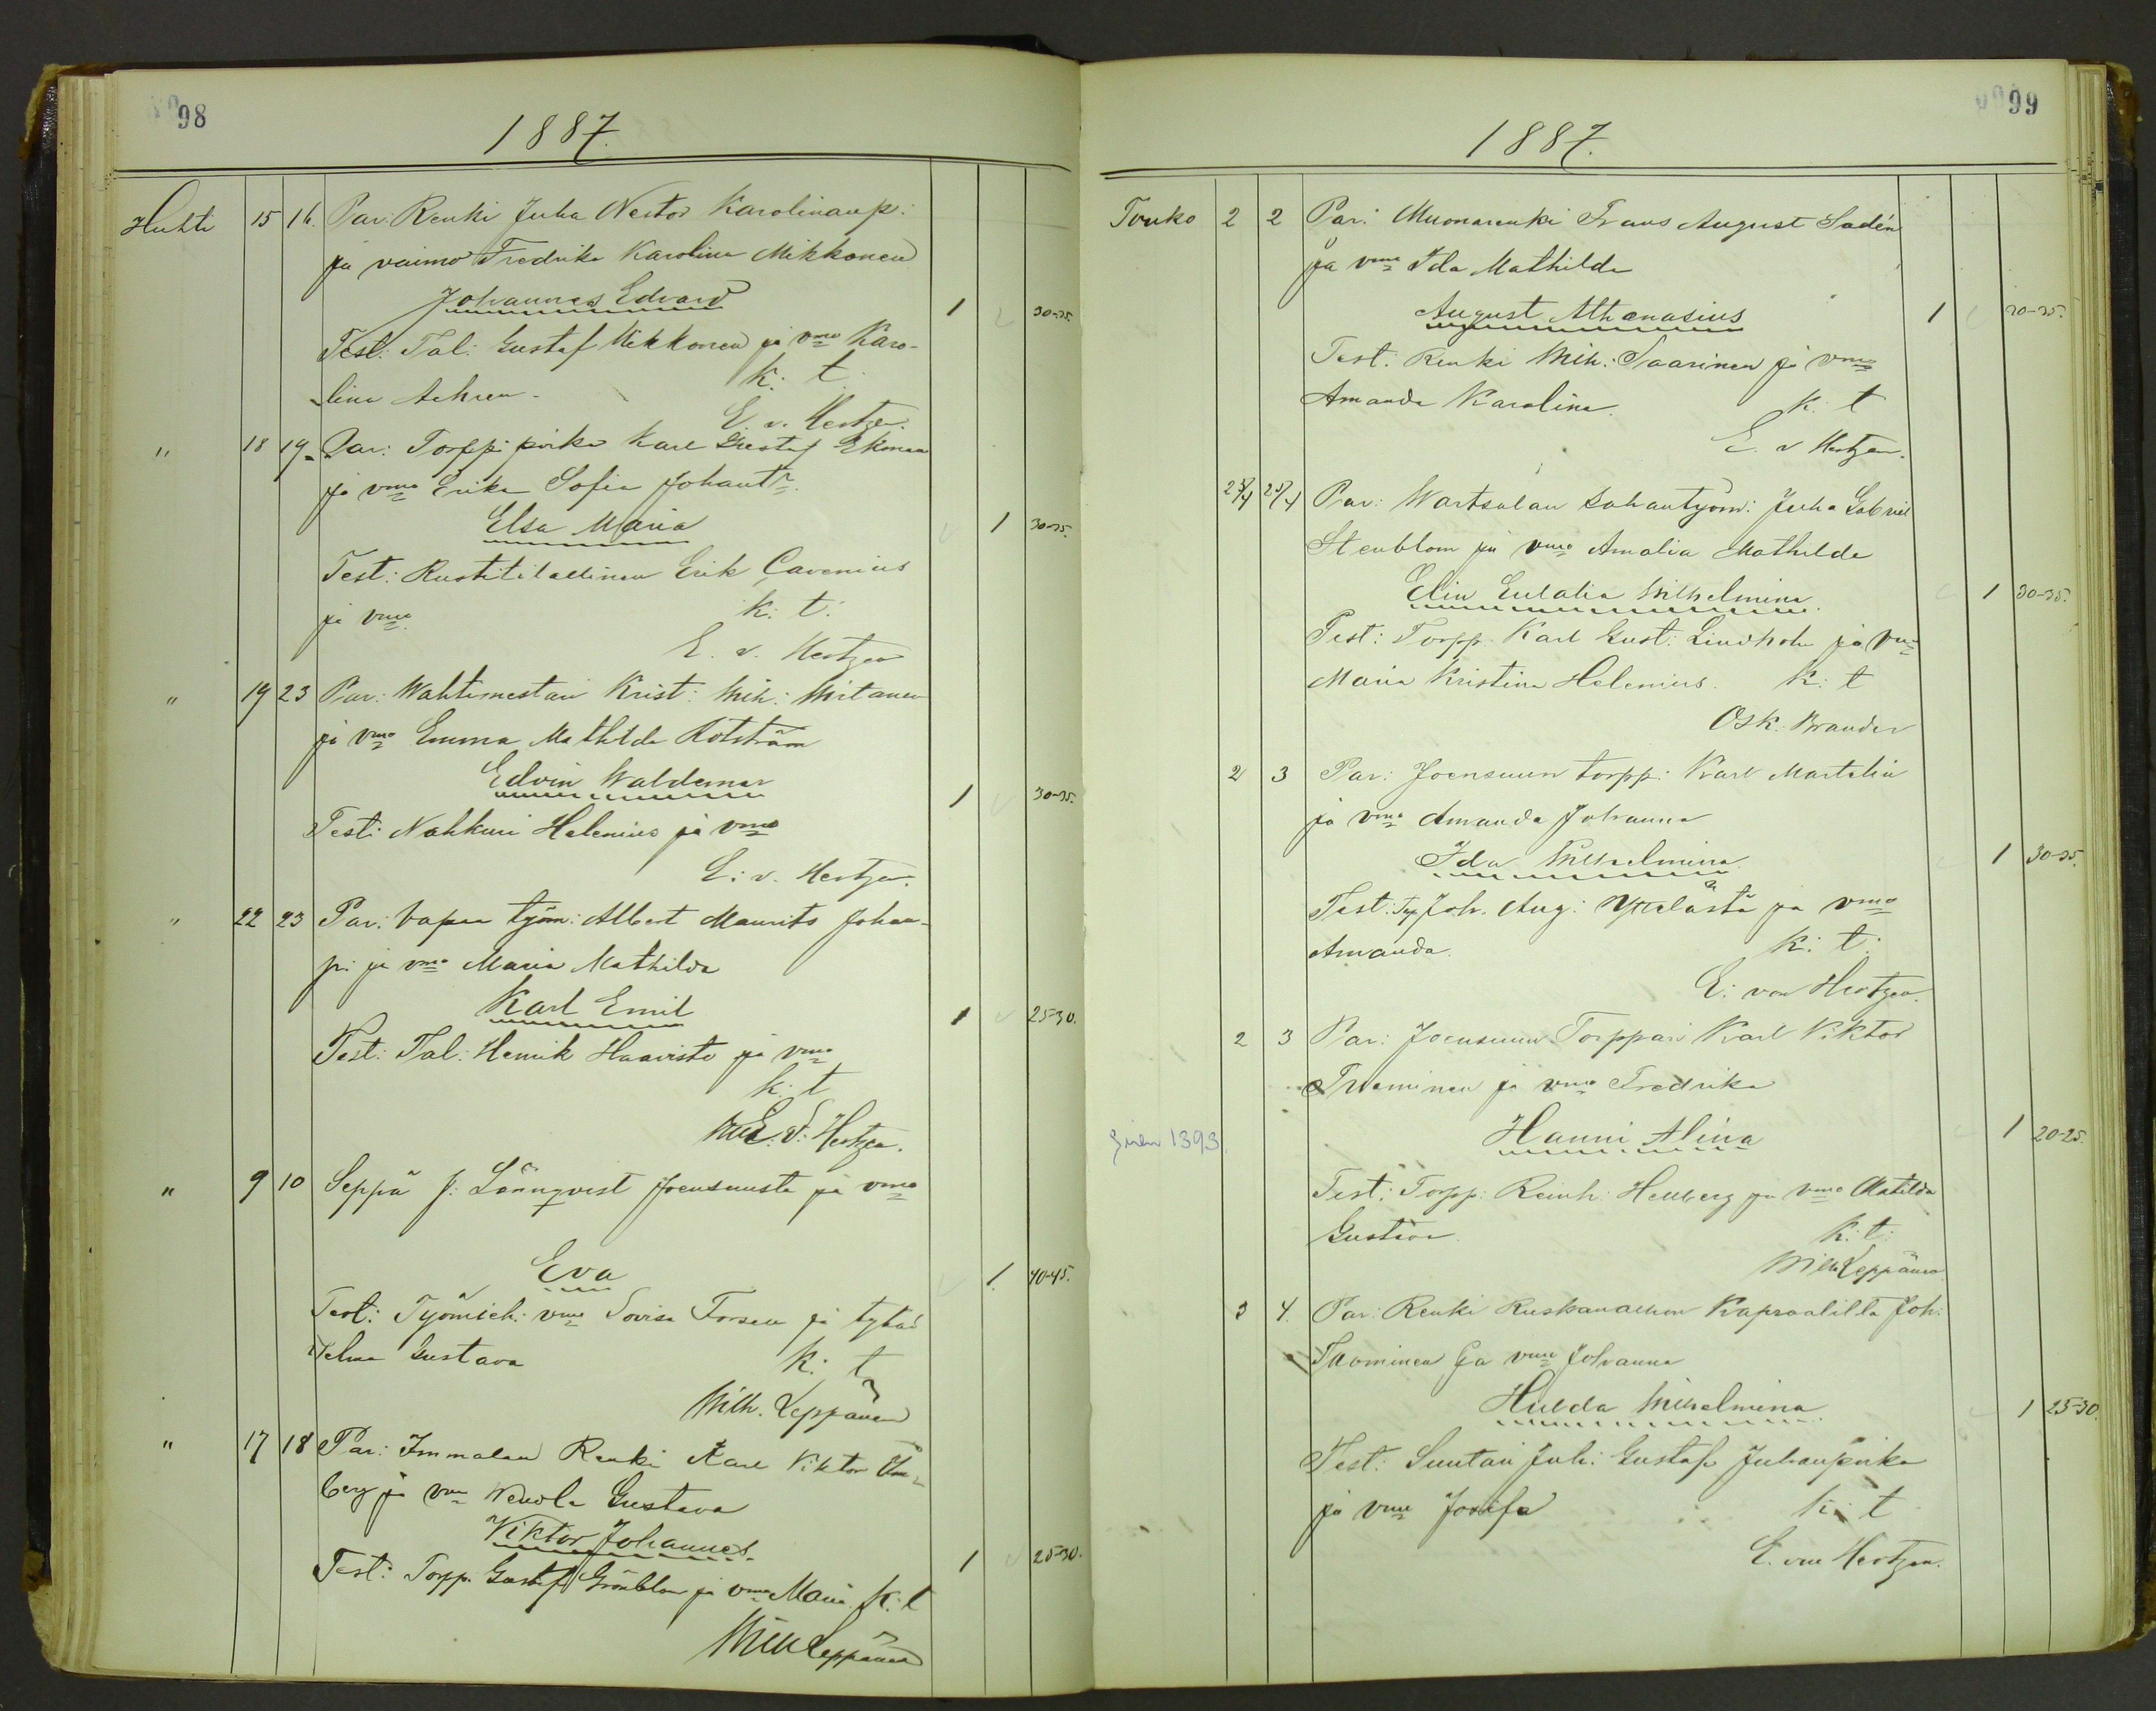 98
1887.
Huhti 15 16. Par: Renki Juha Nestor Karolinanp:
ja vaimo Fredrika Karolina Mikkonen
Johannes Edvard 1 30-35.
Test: Tal: Gustaf Mikkonen ja vmo Karo-
lina K: t
E. v. Hertzen.
" 18 19 Par: Torpp: poika Karl Gustaf Ekman
ja vmo Erika Sofia Johant:
Elsa Maria 1 30-35.
Test: Rustitilallinen Erik Cavenius
ja vmo K: t:
E. v. Hertzen
" 19 23 Par: Wahtimestari Krist: Wilh:
ja vmo Emma Mathilda
Edvin Waldemar 1 30-35.
Test: Nahkuri Helenius ja vmo
E: v. Hertzen.
" 22 23 Par: vapaa työm: Albert Maurits Johan-
p: ja vmo Maria Mathilda
Karl Emil 1 25-30.
Test: Tal: Henrik Haavisto ja vmo
k: t
E. v. Hertzen.
" 9 10 Seppä J: Lönnqvist Joensuusta ja vmo
Eva 1 40-45.
Test: Työmieh: vmo Lovisa Forsen ja tytär
Selma Gustava K: t
Wilh. Leppänen
" 17 18 Par: Immalan Renki Karl Viktor
berg ja vmo Gustava
Viktor Johannes 1 25-30.
Test: Torpp. Gustaf Grönblom ja vmo Maria. K: t
Wilh Leppänen
99
1887.
Touko 2 2 Par: Muonarenki Frans August Sadén
ja vmo Ida Mathilda
August Athanasius 1 30-35.
Test: Renki Wilh: Saarinen ja vmo
Amanda Karolina. K: t
E. v Hertzen.
25/4 25/4 Par: Wartsalan Sahantyöm: Juha Gabriel
Stenblom ja vmo Amalia Mathilda
Elin Eulalia Wilhelmina. 1 30-35.
Test: Torpp. Karl Gust: Lindholm ja vmo
Maria Kristina Helenius. K: t
Osk. Brander
2 3 Par: Joensuun torpp: Karl Martelin
ja vmo Amanda Johanna
Ida Wilhelmina. 1 30-35.
Test: Joh. Aug:  ja vmo
Amanda. K: t:
E: von Hertzen.
2 3 Par: Joensuun Torppari Karl Viktor
Tuominen ja vmo Fredrika
1393 Hanni Alina 1 20-25.
Test: Torpp: Reinh: Hellberg ja vmo Matilda
Gustava K: t:
Wilh Leppänen
3 4. Par: Renki Ruskanallion Kapraalilta Joh:
Tuominen ja vmo Johanna
Hulda Wilhelmina. 1 25-30.
Test: Suutari Juh: Gustaf Juhanpoika
ja vmo Josefa K: t
E. von Hertzen.